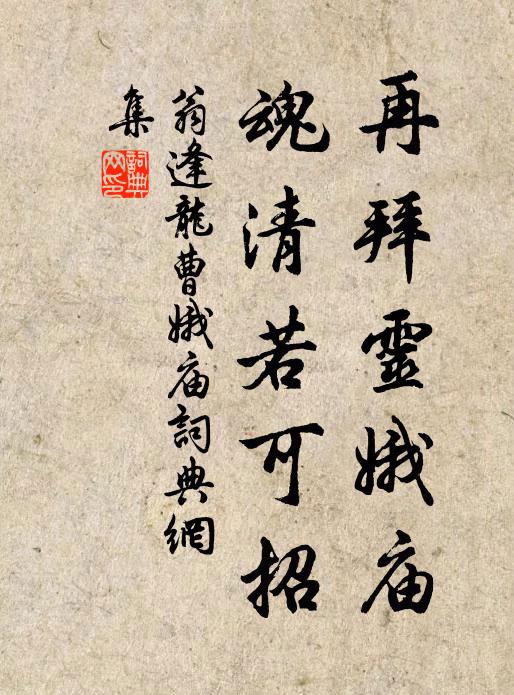 再拜靈娥庙
魂清若可招
翁逢龍曹娥庙詞典網
集
詞典
网印